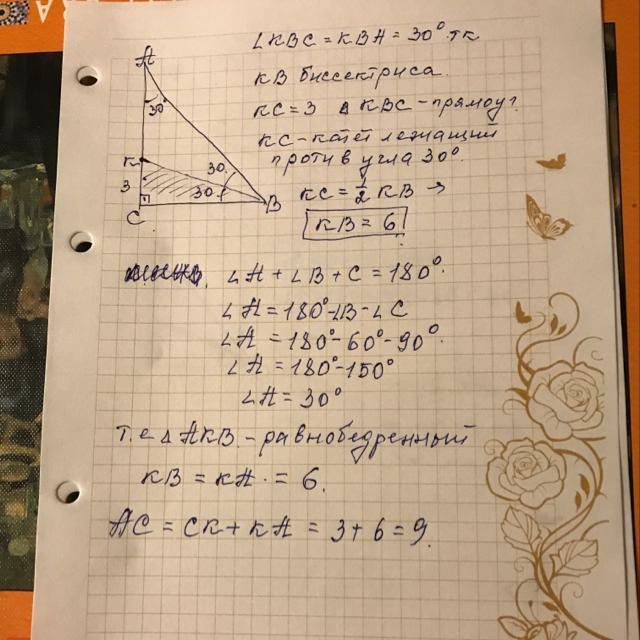 ∠KBC = KBA = 30° тк
KB биссектриса.
KC = 3 ∆ KBC - прямоуг.
KC - катет лежащий
против угла 30°.
KC = 1/2 KB →
KB = 6
A
30°
K
3
30
30
C
B
∠A + ∠B + C = 180°
∠A = 180° - ∠B - ∠C
∠A = 180° - 60° - 90°
∠A = 180° - 150°
∠A = 30°
т.е ∆ AKB - равнобедренный
KB = KA = 6.
AC = CK + KA = 3 + 6 = 9.